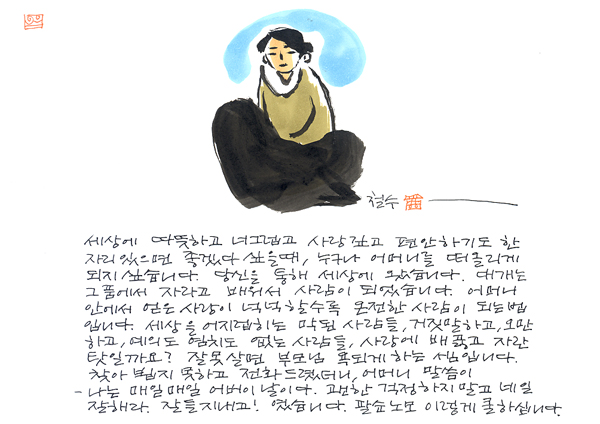 철수
세상에 따뜻하고 너그럽고 사랑 깊고 편안하기도 한
자리 있으면 좋겠다 싶을때, 누구나 어머니를 떠올리게
되지 싶습니다. 당신을 통해 세상에 왔습니다. 대개는
그 품에서 자라고 배워서 사람이 되었습니다. 어머니
안에서 얻은 사랑이 넉넉할수록 온전한 사람이 되는법
입니다. 세상을 어지럽히는 막된 사람들, 거짓말하고, 오만
하고, 예의도 염치도 없는 사람들, 사랑에 배곯고 자란
탓일까요? 잘못살면 부모님 욕되게 하는 셈입니다.
찾아 뵙지 못하고 전화 드렸더니, 어머니 말씀이
- 나는 매일매일 어버이날이다. 괜한 걱정하지말고 네일
잘해라. 잘들지내고! 였습니다. 팔순노모 이렇게 쿨하십니다.